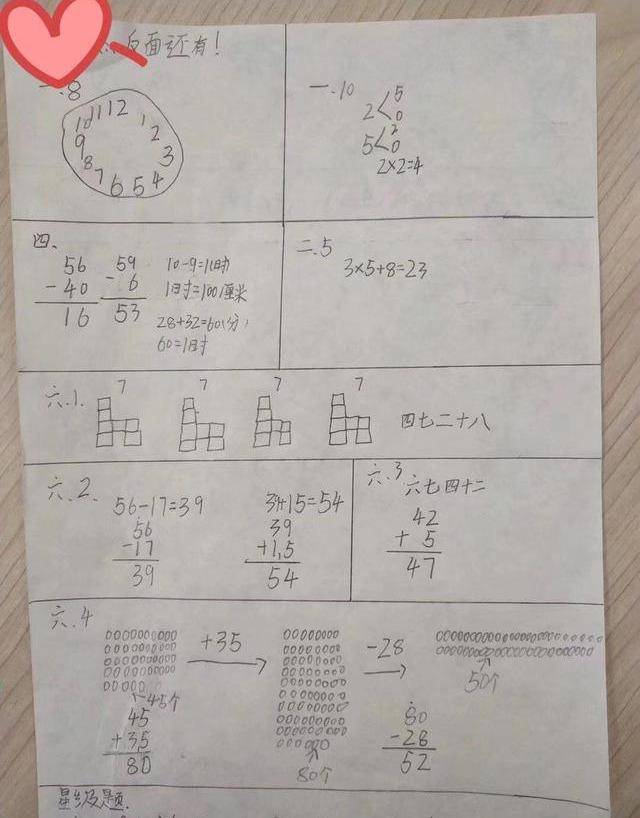 反面还有!
一.8
12
11
1
10
2
9
3
8
4
7
6
5
一.10
2<5 0
5<2 0
2×2=4
四、
56
-40
16
59
-6
53
10-9=1(时)
1时=100厘米
28+32=60(分)
60=1时
二.5
3×5+8=23
六.1.
7 7 7 7
四七二十八
六.2.
56-17=39
56
-17
39
39+15=54
39
+1,5
54
六.3
六七四十二
42
+ 5
47
六.4
+35
-28
45个
45
+35
80
80个
80
-28
52
50个
星级题.